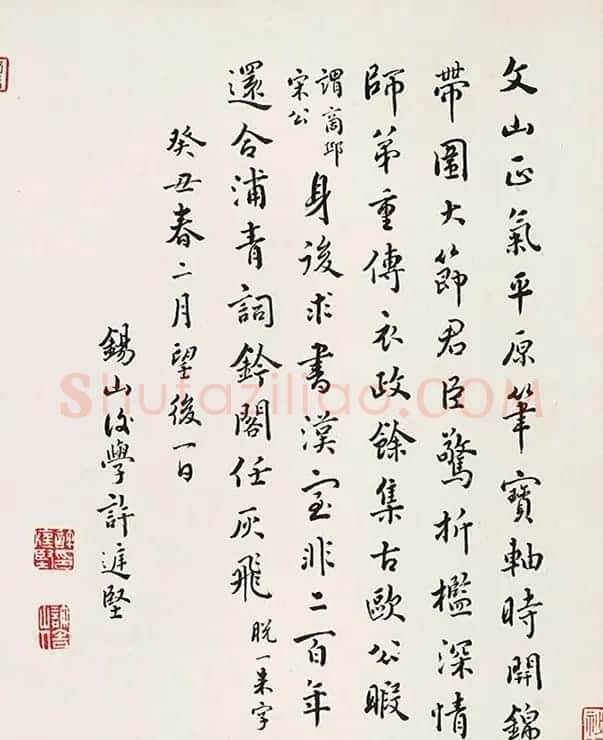 文山正氣平原筆寶軸時開錦
帶圍大節君臣驚折檻深情
師弟重傳衣政餘集古歐公暇
謂商邱
宋公
身後求書漢室非二百年
還合浦青詞鈐閣任灰飛
脫一来字
癸丑春二月望後一日
錫山後學許庭堅
Shufaziliao.COM